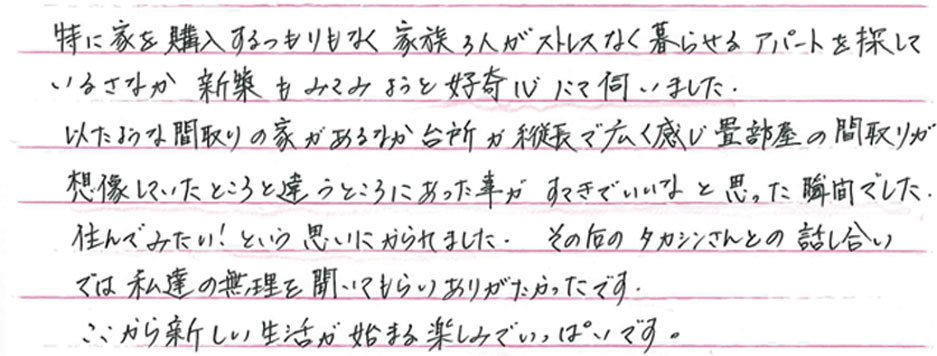 特に家を購入するつもりもなく 家族3人がストレスなく暮らせる アパートを探して
いるさなか 新築もみてみようと好奇心にて伺いました.
似たような間取りの家があるなか台所が縦長で広く感じ畳部屋の間取りが
想像していたところと違うところにあった事が すてきでいいなと思った瞬間でした.
住んでみたい!という思いにかられました. その后のタカシンさんとの話し合い
では私達の無理を聞いてもらいありがたかったです.
ここから新しい生活が始まる楽しみでいっぱいです。